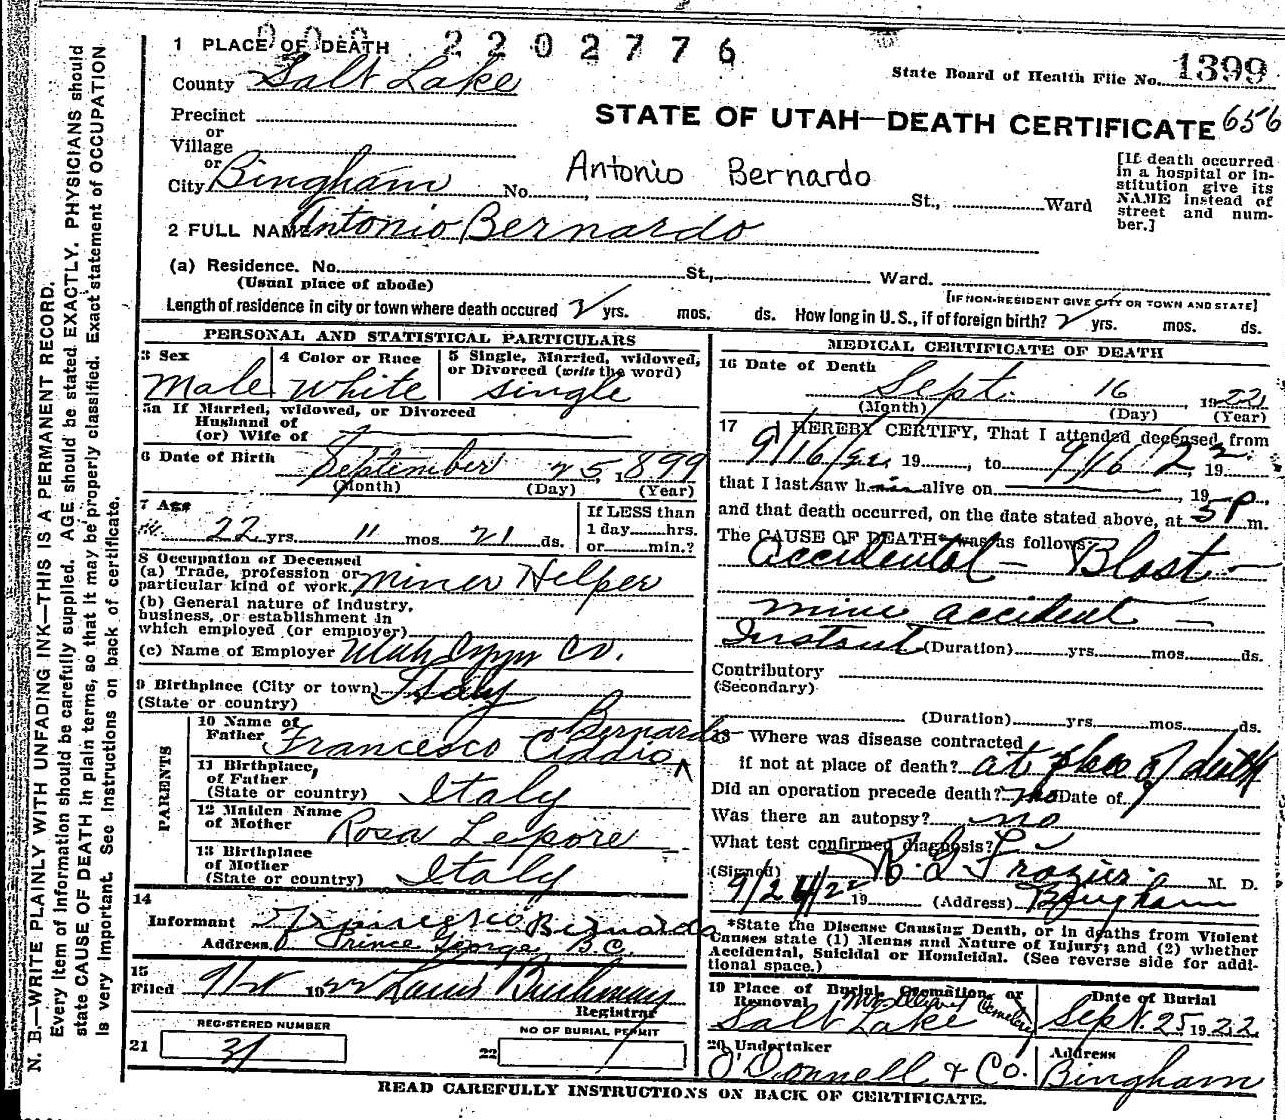 2202776
1 PLACE OF DEATH
County Salt Lake
State Board of Health File No. 1399
Precinct
or
Village
or
STATE OF UTAH—DEATH CERTIFICATE 656
City Bingham No. St., Ward
Antonio Bernardo
[If death occurred
in a hospital or in-
stitution give its
NAME instead of
street and num-
ber.]
2 FULL NAME Antonio Bernardo
(a) Residence. No. St., Ward.
(Usual place of abode)
[IF NON-RESIDENT GIVE CITY OR TOWN AND STATE]
Length of residence in city or town where death occured 2 yrs. mos. ds. How long in U. S., if of foreign birth? 2 yrs. mos. ds.
PERSONAL AND STATISTICAL PARTICULARS
3 Sex
Male
4 Color or Race
white
5 Single, Married, widowed,
or Divorced (write the word)
single
5a If Married, widowed, or Divorced
Husband of
(or) Wife of
6 Date of Birth
September 25, 1899
(Month) (Day) (Year)
7 Age
22 yrs. 11 mos. 21 ds.
If LESS than
1 day hrs.
or min.?
8 Occupation of Deceased
(a) Trade, profession or
particular kind of work. miner Helper
(b) General nature of Industry,
business, or establishment in
which employed (or employer)
(c) Name of Employer Utah Co.
9 Birthplace (City or town) Italy
(State or country)
PARENTS
10 Name of
Father Francesco Ciddio Bernardo
11 Birthplace,
of Father
(State or country) Italy
12 Maiden Name
of Mother Rosa Lepore
13 Birthplace
of Mother
(State or country) Italy
14
Informant Bernardo
Address Prince George, B.C.
15
Filed 1922 Louis
Registrar
REGISTERED NUMBER
21 31
NO OF BURIAL PERMIT
22 1
MEDICAL CERTIFICATE OF DEATH
16 Date of Death
Sept. 16 1922
(Month) (Day) (Year)
17 I HEREBY CERTIFY, That I attended deceased from
9/16/22 19, to 9/16 22 19
that I last saw him alive on 19
and that death occurred, on the date stated above, at 5 P m.
The CAUSE OF DEATH* was as follows:
Accidental — Blast —
mine accident —
Instant (Duration) yrs. mos. ds.
Contributory
(Secondary)
(Duration) yrs. mos. ds.
18 Where was disease contracted
if not at place of death? at place of death
Did an operation precede death? no Date of
Was there an autopsy? no
What test confirmed diagnosis?
(Signed) R. G. Frazier M. D.
9/24/22 19 (Address) Bingham
*State the Disease Causing Death, or in deaths from Violent
Causes state (1) Means and Nature of Injury; and (2) whether
Accidental, Suicidal or Homicidal. (See reverse side for addi-
tional space.)
19 Place of Burial, Cremation, or
Removal Mt. Olivet Cemetery
Salt Lake
Date of Burial
Sept. 25 1922
20 Undertaker
O'Donnell & Co.
Address
Bingham
READ CAREFULLY INSTRUCTIONS ON BACK OF CERTIFICATE.
N. B.—WRITE PLAINLY WITH UNFADING INK—THIS IS A PERMANENT RECORD.
Every item of information should be carefully supplied. AGE should be stated EXACTLY. PHYSICIANS should
state CAUSE OF DEATH in plain terms, so that it may be properly classified. Exact statement of OCCUPATION
is very important. See instructions on back of certificate.